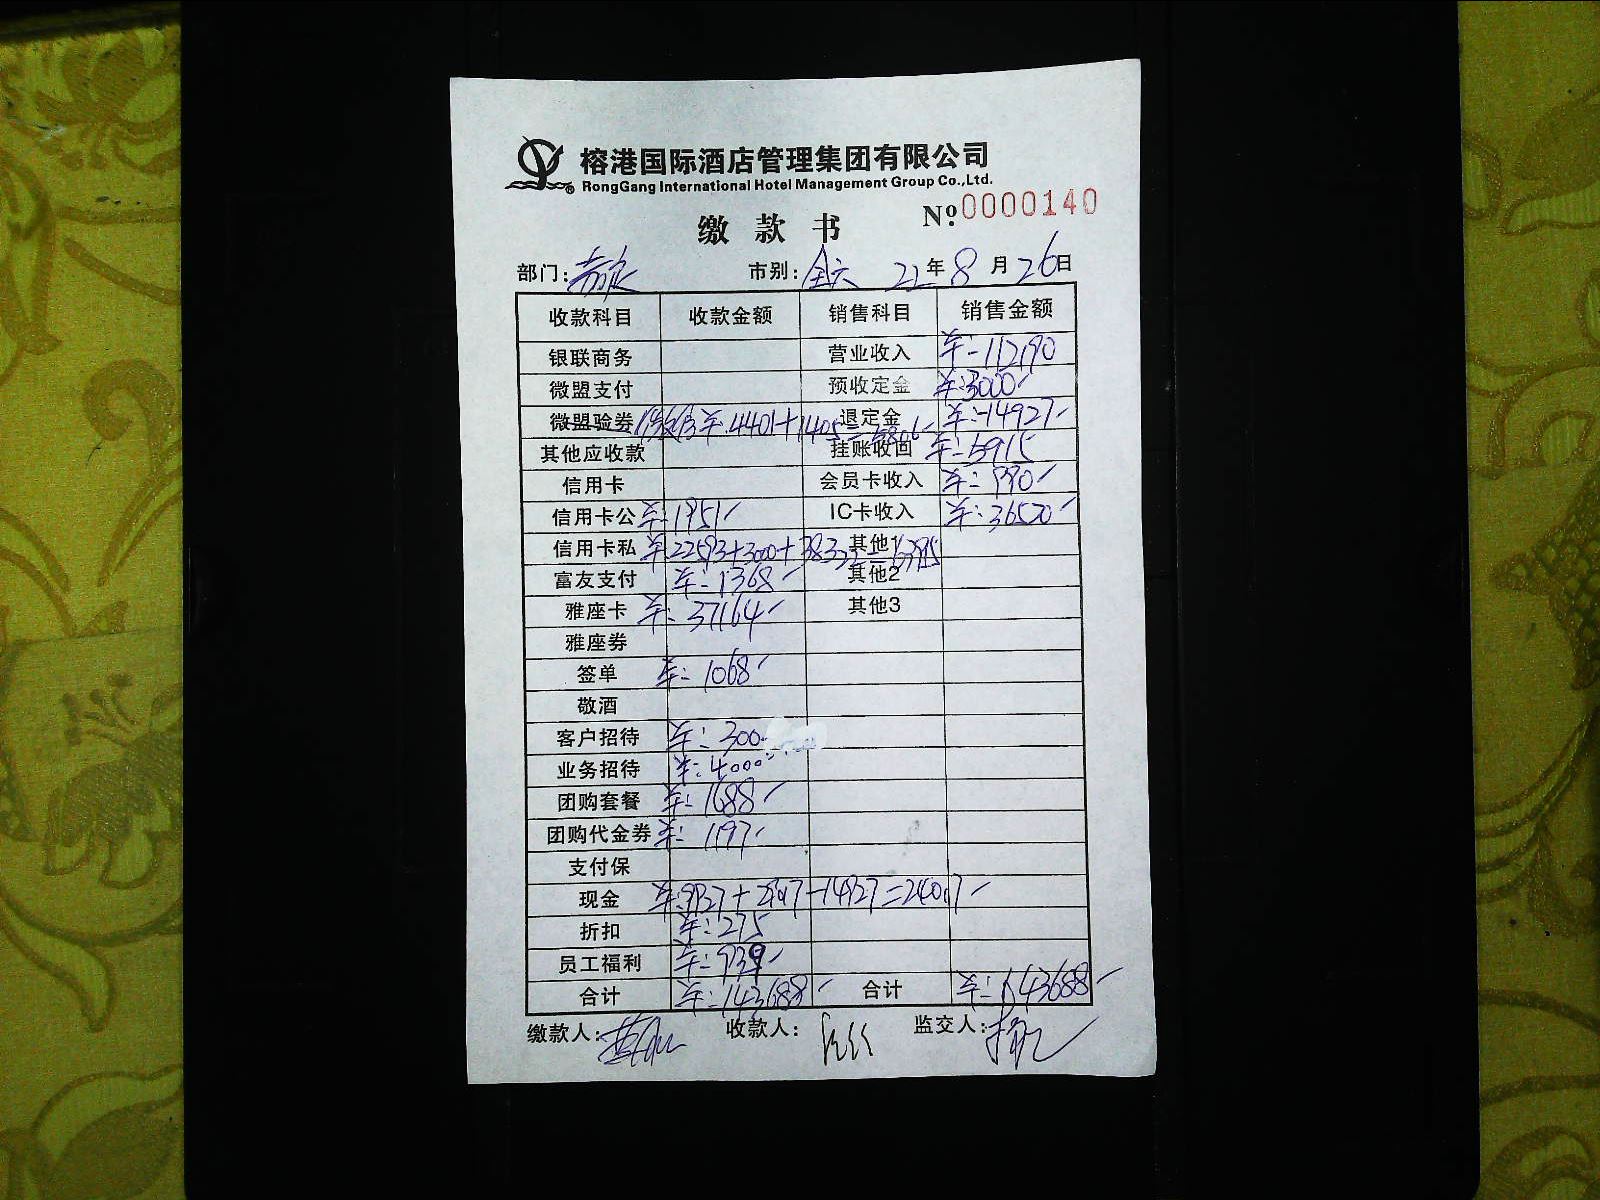 榕港国际酒店管理集团有限公司
RongGang International Hotel Management Group Co.,Ltd.
缴款书 Nº:0000140
部门: 市别: 22年8月26日
收款科目 收款金额 销售科目 销售金额
银联商务 营业收入 ¥:112190
微盟支付 预收定金 ¥:3000
微盟验券 ¥:4401+1405=5806 退定金 ¥:-14927
其他应收款 挂账收回 ¥:5915
信用卡 会员卡收入 ¥:990
信用卡公 ¥:1951 IC卡收入 ¥:36520
信用卡私 其他1
富友支付 ¥:1368 其他2
雅座卡 ¥:37164 其他3
雅座券
签单 ¥:1068
敬酒
客户招待 ¥:300
业务招待 ¥:4000
团购套餐 ¥:1688
团购代金券 ¥:1197
支付保
现金
折扣 ¥:275
员工福利 ¥:939
合计 ¥:143688 合计 ¥:143688
缴款人: 收款人: 监交人: